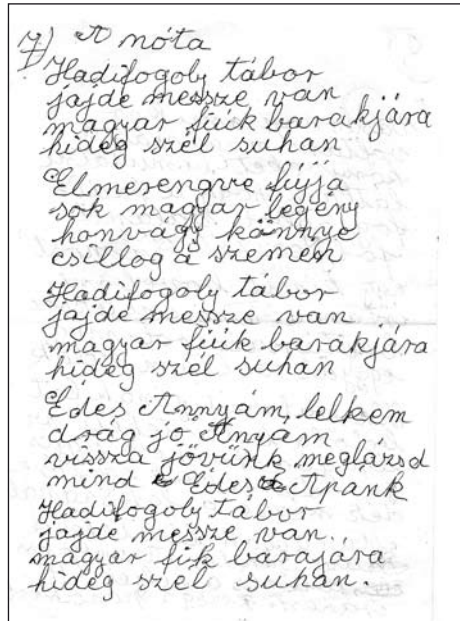 7) A nóta
Hadifogoly tábor
jajde messze van
magyar fiúk barakjára
hideg szél suhan
Elmerengve fújja
sok magyar legény
honvágy könnye
csillog a szemén
Hadifogoly tábor
jajde messze van
magyar fiúk barakjára
hideg szél suhan
Édes Annyám, lelkem
drág jó Anyám
vissza jövünk meglázsd
mind Édes Apánk
Hadifogoly tábor
jajde messze van.
magyar fik barajára
hideg szél suhan.